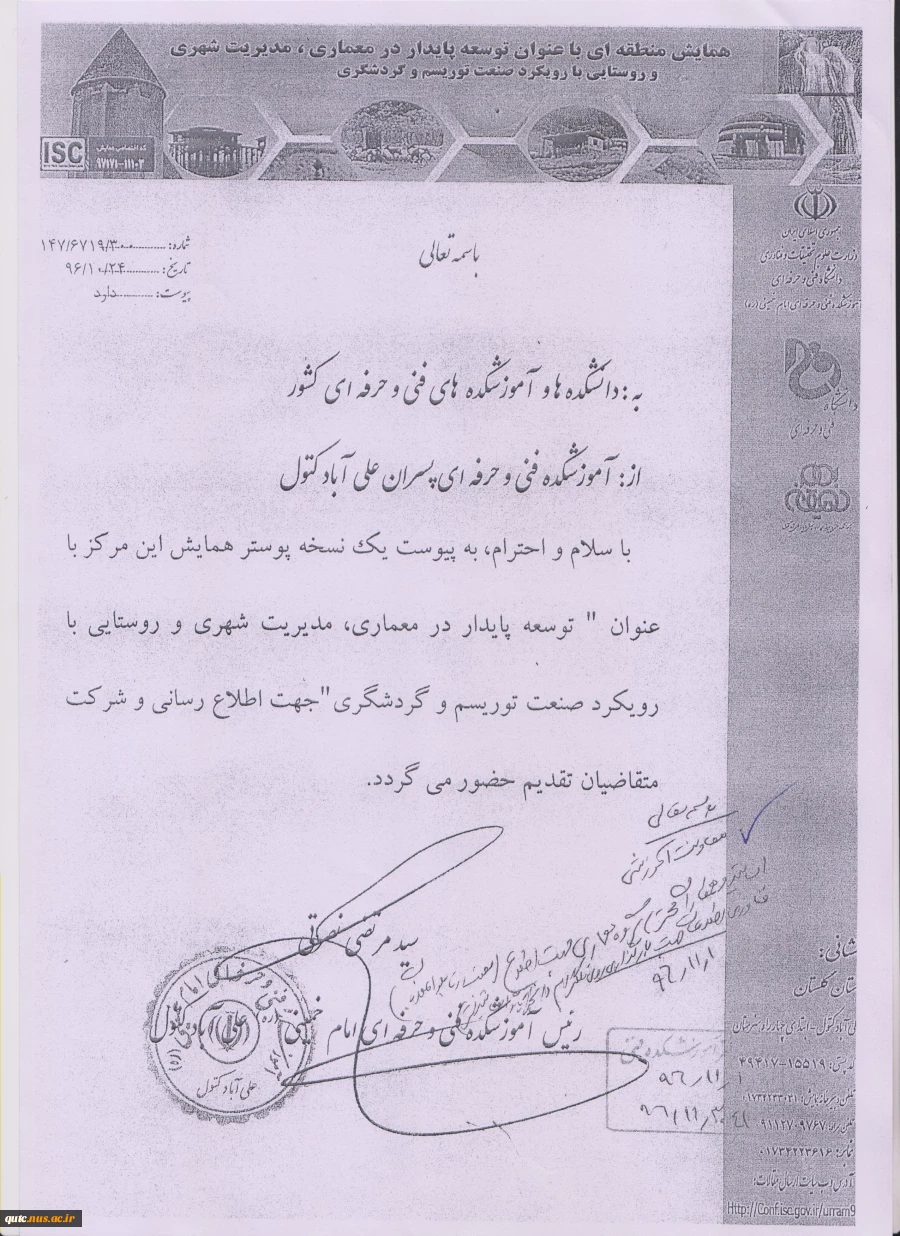 همایش منطقه ای با عنوان توسعه پایدار در معماری ، مدیریت شهری
و روستایی با رویکرد صنعت توریسم و گردشگری
ISC
کد اختصاصی همایش
۹۷۱۷۱-۱۱۰۳
جمهوری اسلامی ایران
وزارت علوم تحقیقات و فناوری
دانشگاه فنی و حرفه ای
آموزشکده فنی و حرفه ای امام خمینی (ره)
دانشگاه
فنی و حرفه ای
باسمه تعالی
شماره: ۱۴۷/۶۷۱۹/۳۰۰
تاریخ: ۹۶/۱۰/۲۴
پیوست: دارد
به : دانشکده ها و آموزشکده های فنی و حرفه ای کشور
از : آموزشکده فنی و حرفه ای پسران علی آباد کتول
با سلام و احترام، به پیوست یک نسخه پوستر همایش این مرکز با
عنوان " توسعه پایدار در معماری، مدیریت شهری و روستایی با
رویکرد صنعت توریسم و گردشگری"جهت اطلاع رسانی و شرکت
متقاضیان تقدیم حضور می گردد.
بسمه تعالی
معاونت آموزشی
۹۶/۱۱/۱
سید مرتضی نصرتی
رئیس آموزشکده فنی و حرفه ای امام خمینی (ره) علی آباد کتول
علی آباد کتول
آموزشکده فنی
۹۶/۱۱/۱
نشانی:
استان گلستان
کدپستی: ۱۵۵۱۹-۴۹۴۱۷
نمابر: ۰۱۷۳۴۲۲۳۶۱۶
آدرس وب سایت ارسال مقالات:
Http://Conf.isc.gov.ir/urram9
qutc.nus.ac.ir